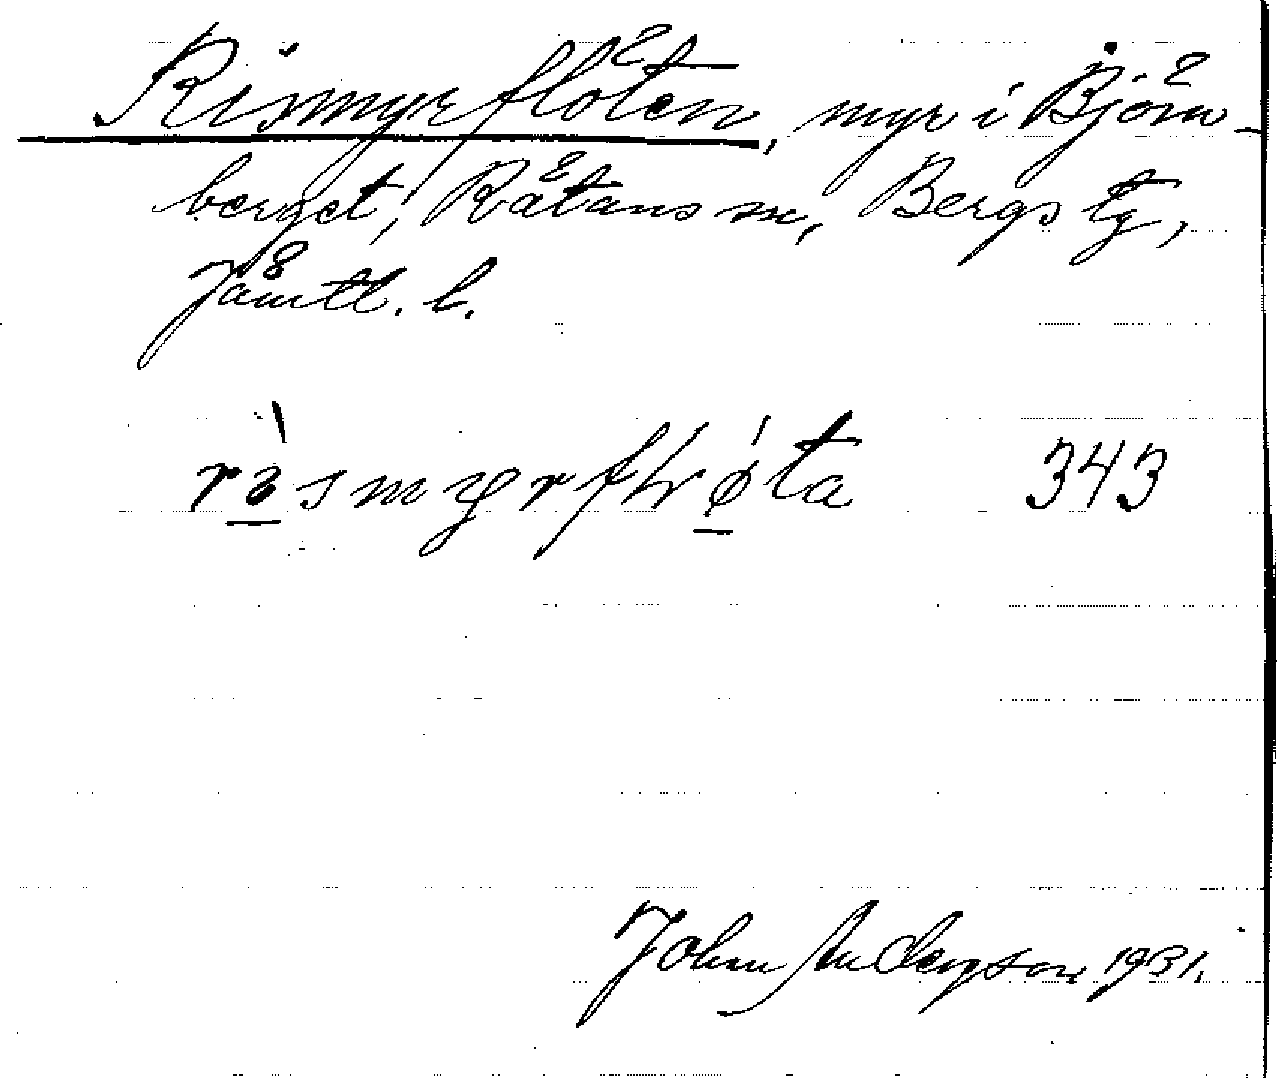 Rismyrflöten, myr i Björn-
berget, Rätans sn, Bergs tg,
Jämtl. l.
343
John Anderson 1931.